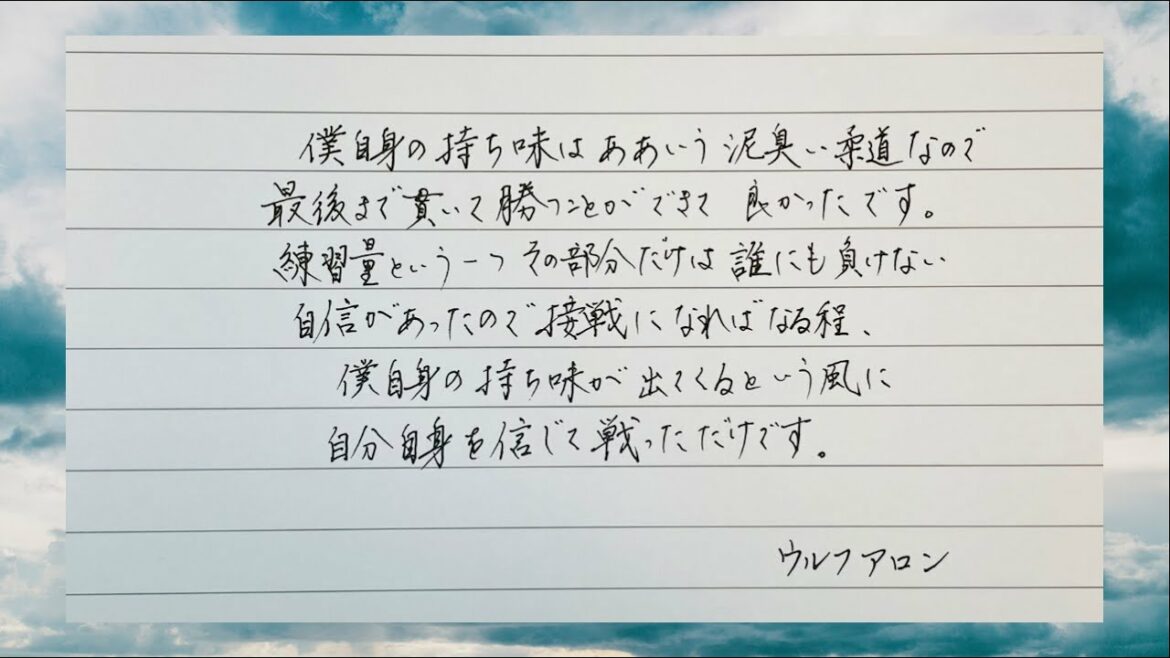 僕自身の持ち味はああいう泥臭い柔道なので
最後まで貫いて勝つことができて 良かったです。
練習量という一つその部分だけは誰にも負けない
自信があったので接戦になればなる程、
僕自身の持ち味が出てくるという風に
自分自身を信じて戦っただけです。
ウルフアロン